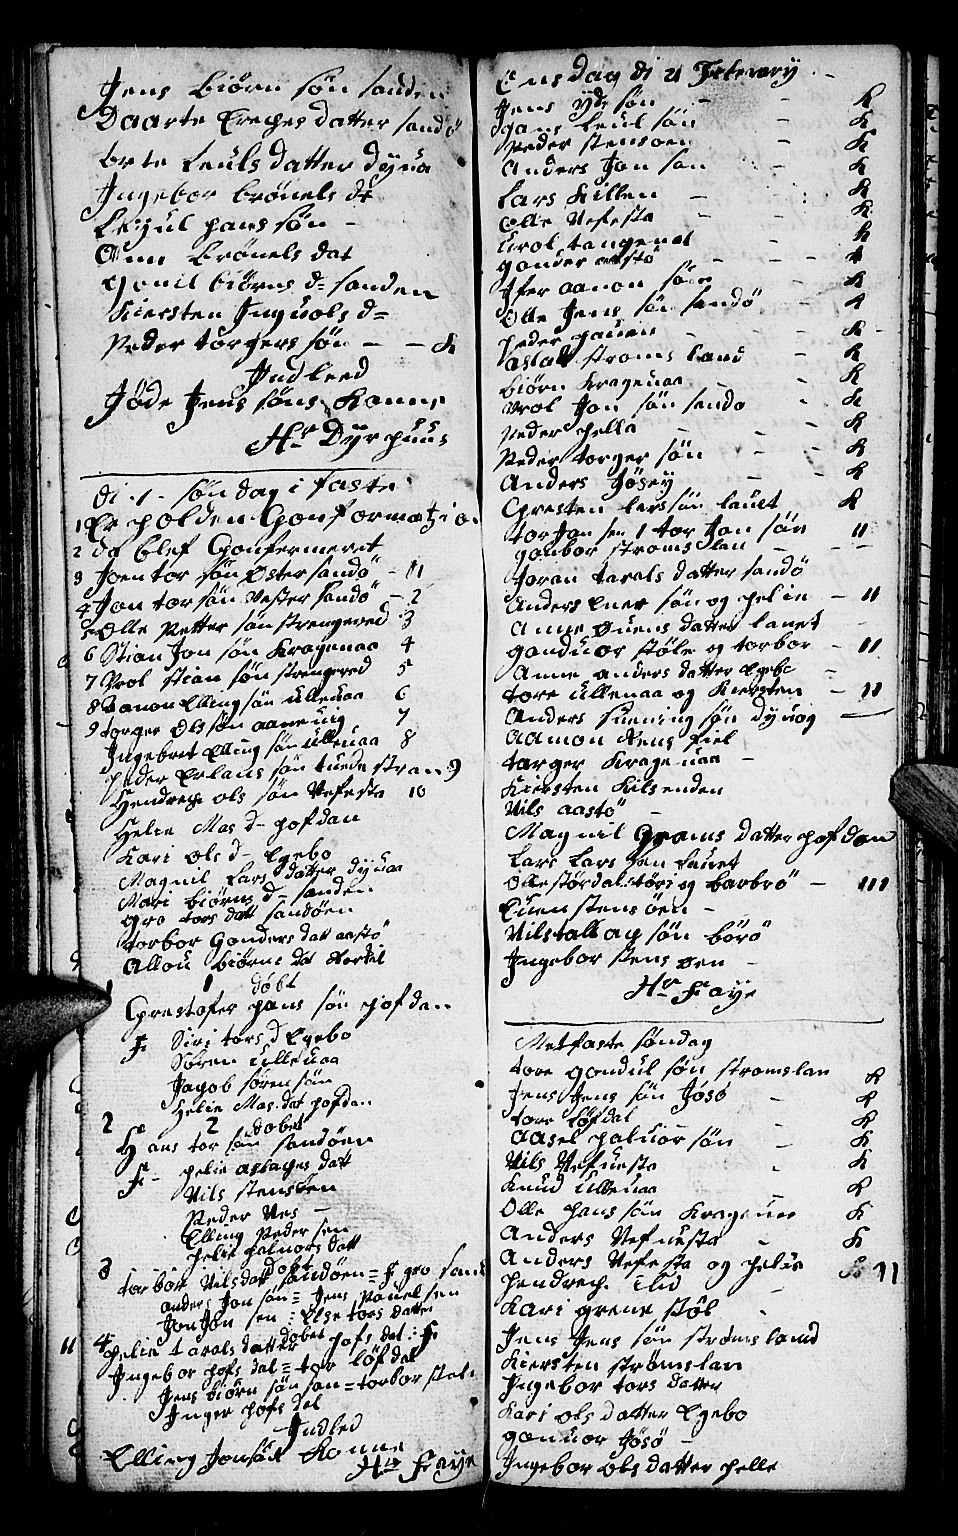 Jens biørn søn sanden
Daarte Ereches datter sandø
brte Leuls datter dyua
Ingebor brønels dt
Leyul hans søn -
Ann brønels dat
gonil biørns d= sanden
Kiersten Inguols d=
Peder torgers søn - - K
Indleed
Jøde Jens søns Konne
Hr Dyrhuus
Di - 1 - søndag i faste
1 Er holden Gonformatzion
2 da blef Gonfermeret
3 Joen tor søn Øster sandø - 1
4 Jon tor søn Vester sandø - 2
5 Olle Petter søn strengered 3
6 Stian Jon søn Kragenaa 4
7 Vrol stian søn strengered 5
8 aanon Elling søn ulleuaa 6
9 torger Ols søn aaneung 7
Ingebret Elling søn ulleuaa 8
peder Erlans søn tuede stran 9
Hendrech ols søn Vefesta 10
Helie Mas d- hofdan
Kari ols d- Egebo
Magnil Lars datter dyuaa
Mari biørns d- sanden
gro tors datt sandøen
torbor Gonders datt aastø
Allou biørns dat
1 døbt
Grestofer hans søn hofdan
F: Siri tors d Egebo
Søren ulleuaa
Jagob søren søn
Helie Mas dat hofdan
2 2 døbet
Hans tor søn sandøen
F- helie aslaches datt
Nils stensøen
Peder Ves -
Elling Peder sen
helie haluors datt
3 døbt
torbor Nilsdatt sandøen = F gro sand
anders Jon søn = Jens Ponel sen
Jon Jon sen : Else tors datter
4 døbet
helie tarals datter hofs del : F
Ingebor hofs del = tor løfdal
Jens biørn søn san = torbor støle
Inger hofs del
Indled
Elling Jonsøn Konne
Hr Faye
Ensdag di 21 Februarij -
Jens yds søn - - K
hans leul søn - K
Peder stensoen - K
Anders Jon søn - K
Lars Killen - : K
Olle Vefesta - - K
Krol tangenal - K
gonder aastø - - - K
Ifer aanon søn - K
Olle Jens søn sandø - K
peder hauen - - K -
aslak stroms land - K
biørn Kragenaa - K
Vrol Jon søn sando - K
Peder hella - - - K
Peder torger søn - - K
Anders Jøsøy - - K
Gresten lars søn lauet K
tor Jon sen 1 tor Jon søn 11
gonbor stroms lan - - -
Joran tarals datter sandø
Anders Ener søn og helie - 11
Anne Ouens datter lauet -
gonduor støle og torbor - 11
Anne anders datter Egebo -
tore ullenaa og Kiersten - 11
Anders suening søn dyuog -
aamon Rens fiel
targer Kragenaa -
Kiersten Kilsenden
Nils aastø
Magnil grams datter hofdan
Lars Lars søn lauet
Olle størdal: tøri og barbrø - 111
Euen stensøen -
Nils tallag søn børø
Ingebor stensøen -
Hr Faye
Metfaste søndag
tore gondul søn stromslan K
Jens Jens søn Jøsø - K
tore løfdal K
aasel haluor søn - K
Nils Vefuesta . K
Knud ulleuaa K
Olle hans søn Kragenaa K
Anders Vefnesta - K
Anders Vefesta og helie K 11
hendrech Elid -
Kari grene støl -
Jens Jens søn strømsland
Kiersten strømslan
Ingebor tors datter
Kari ols datter Egebo
gonuor Jøsø -
Ingebor Ols datter helle